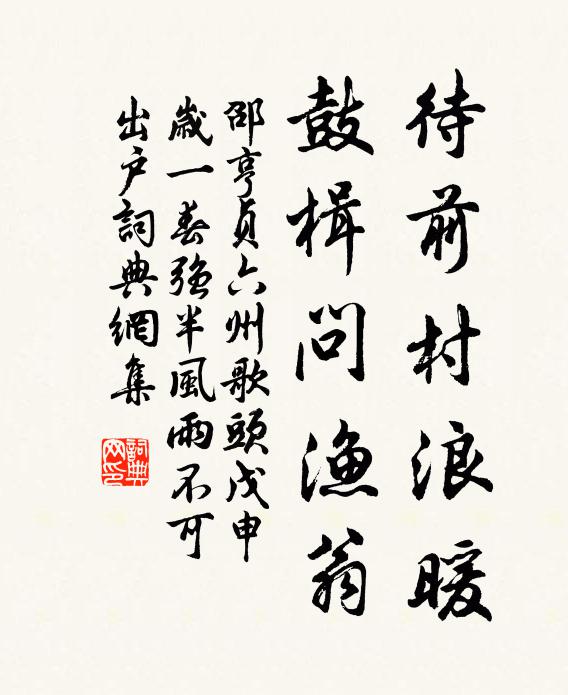 待前村浪暖
鼓楫問漁翁
邵亨貞六州歌頭戊申
歲一春強半風雨不可
出戶詞典網集
詞典
网印